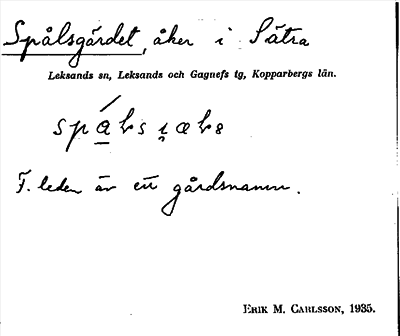 Spålsgärdet, åker i Sätra
Leksands sn, Leksands och Gagnefs tg, Kopparbergs län.
F. leden är ett gårdsnamn.
ERIK M. CARLSSON, 1935.